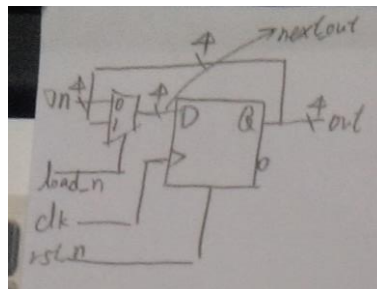 4 next_out
in 4 0 4 D Q 4 out
1
load_n
clk
rst_n